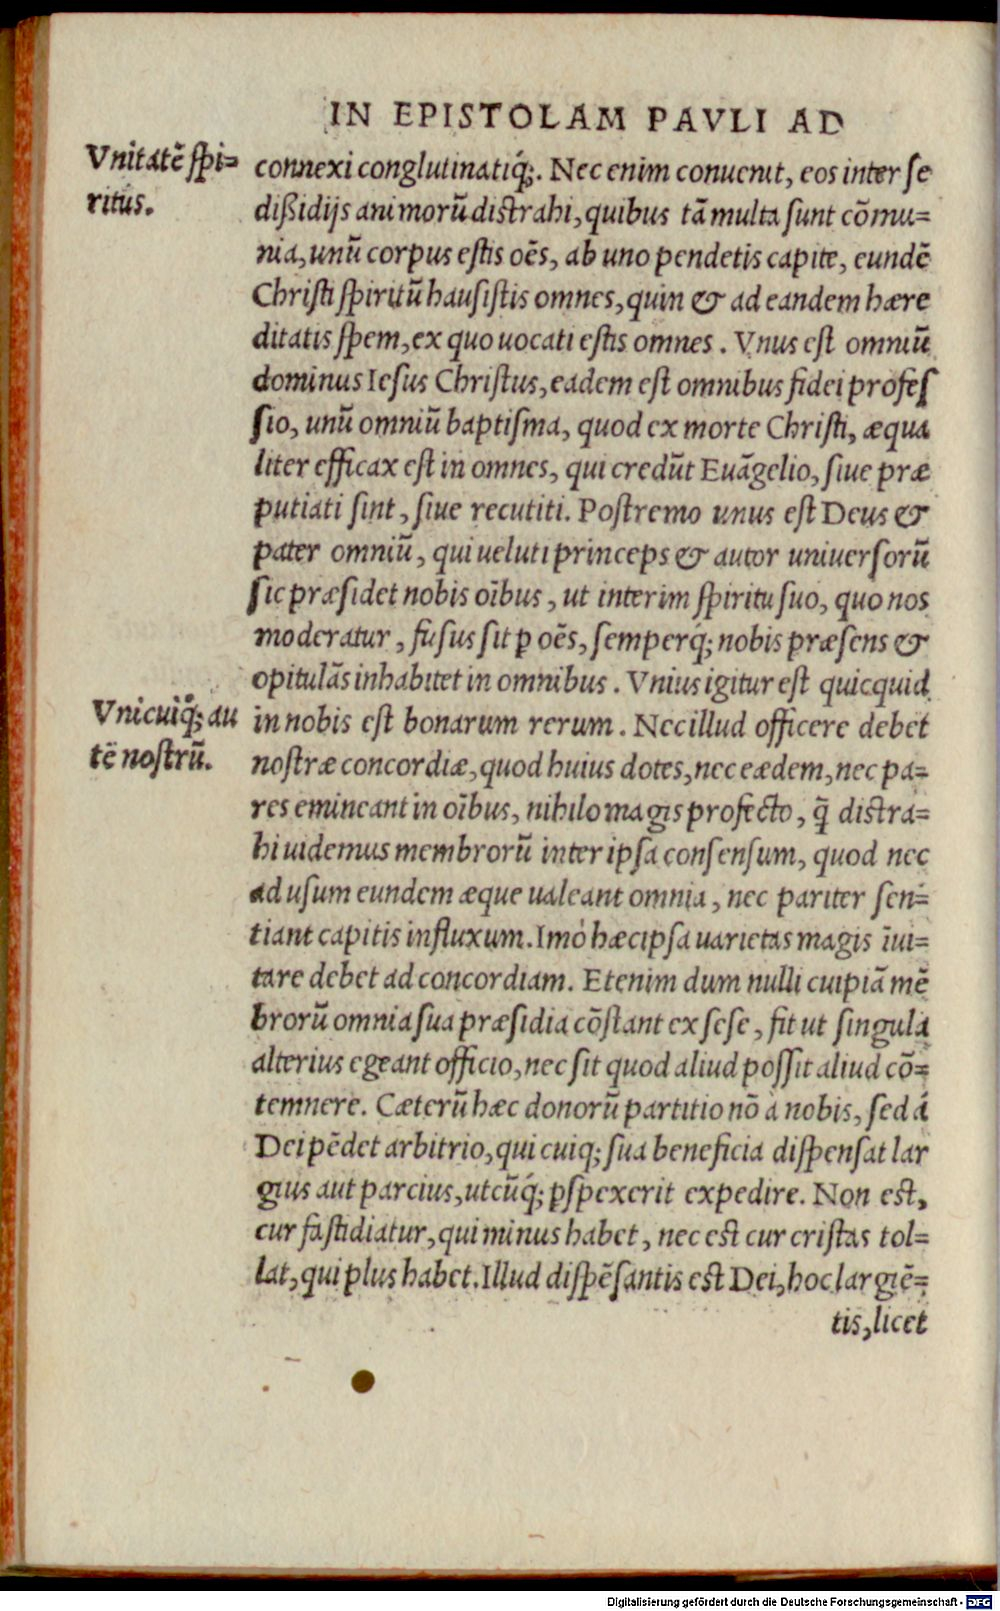 IN EPISTOLAM PAVLI AD
Vnitatē spi=
ritus.
connexi conglutinatiq́;. Nec enim conuenit, eos inter se
dißidijs animorū distrahi, quibus tā multa sunt cōmu=
nia, unū corpus estis oēs, ab uno pendetis capite, eundē
Christi spiritū hausistis omnes, quin & ad eandem hære
ditatis spem, ex quo uocati estis omnes. Vnus est omniū
dominus Iesus Christus, eadem est omnibus fidei profes
sio, unū omniū baptisma, quod ex morte Christi, æqua
liter efficax est in omnes, qui credūt Euāgelio, siue præ
putiati sint, siue recutiti. Postremo unus est Deus &
pater omniū, qui ueluti princeps & autor uniuersorū
sic præsidet nobis oībus, ut interim spiritu suo, quo nos
moderatur, fusus sit ꝑ oēs, semperq́; nobis præsens &
opitulās inhabitet in omnibus. Vnius igitur est quicquid
Vnicuiq̊; au
tē nostrū.
in nobis est bonarum rerum. Nec illud officere debet
nostræ concordiæ, quod huius dotes, nec eædem, nec pa=
res emineant in oībus, nihilo magis profecto, q̄ distra=
hi uidemus membrorū inter ipsa consensum, quod nec
ad usum eundem æque ualeant omnia, nec pariter sen=
tiant capitis influxum. Imò hæc ipsa uarietas magis īui=
tare debet ad concordiam. Etenim dum nulli cuipiā mē
brorū omnia sua præsidia cōstant ex sese, fit ut singula
alterius egeant officio, nec sit quod aliud possit aliud cō=
temnere. Cæterū hæc donorū partitio nō à nobis, sed á
Dei pēdet arbitrio, qui cuiq; sua beneficia dispensat lar
gius aut parcius, utcūq́; ꝓspexerit expedire. Non est,
cur fastidiatur, qui minus habet, nec est cur cristas tol=
lat, qui plus habet. Illud dispēsantis est Dei, hoc largiē=
tis, licet
Digitalisierung gefördert durch die Deutsche Forschungsgemeinschaft - DFG